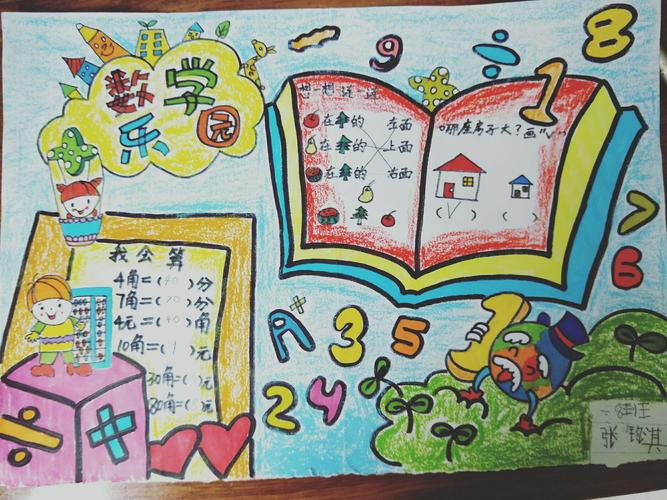 数学
乐园
9
÷
8
1
想一想 连一连
🍎在🌲的 左面
在🌲的 上面
在🌲的 右面
哪座房子大？画"√"
(√) ( )
7
6
我会算
4角=(40)分
7角=(70)分
4元=(40)角
10角=(1)元
30角=( )元
80角=( )元
A+
3
5
2
4
÷
×
张